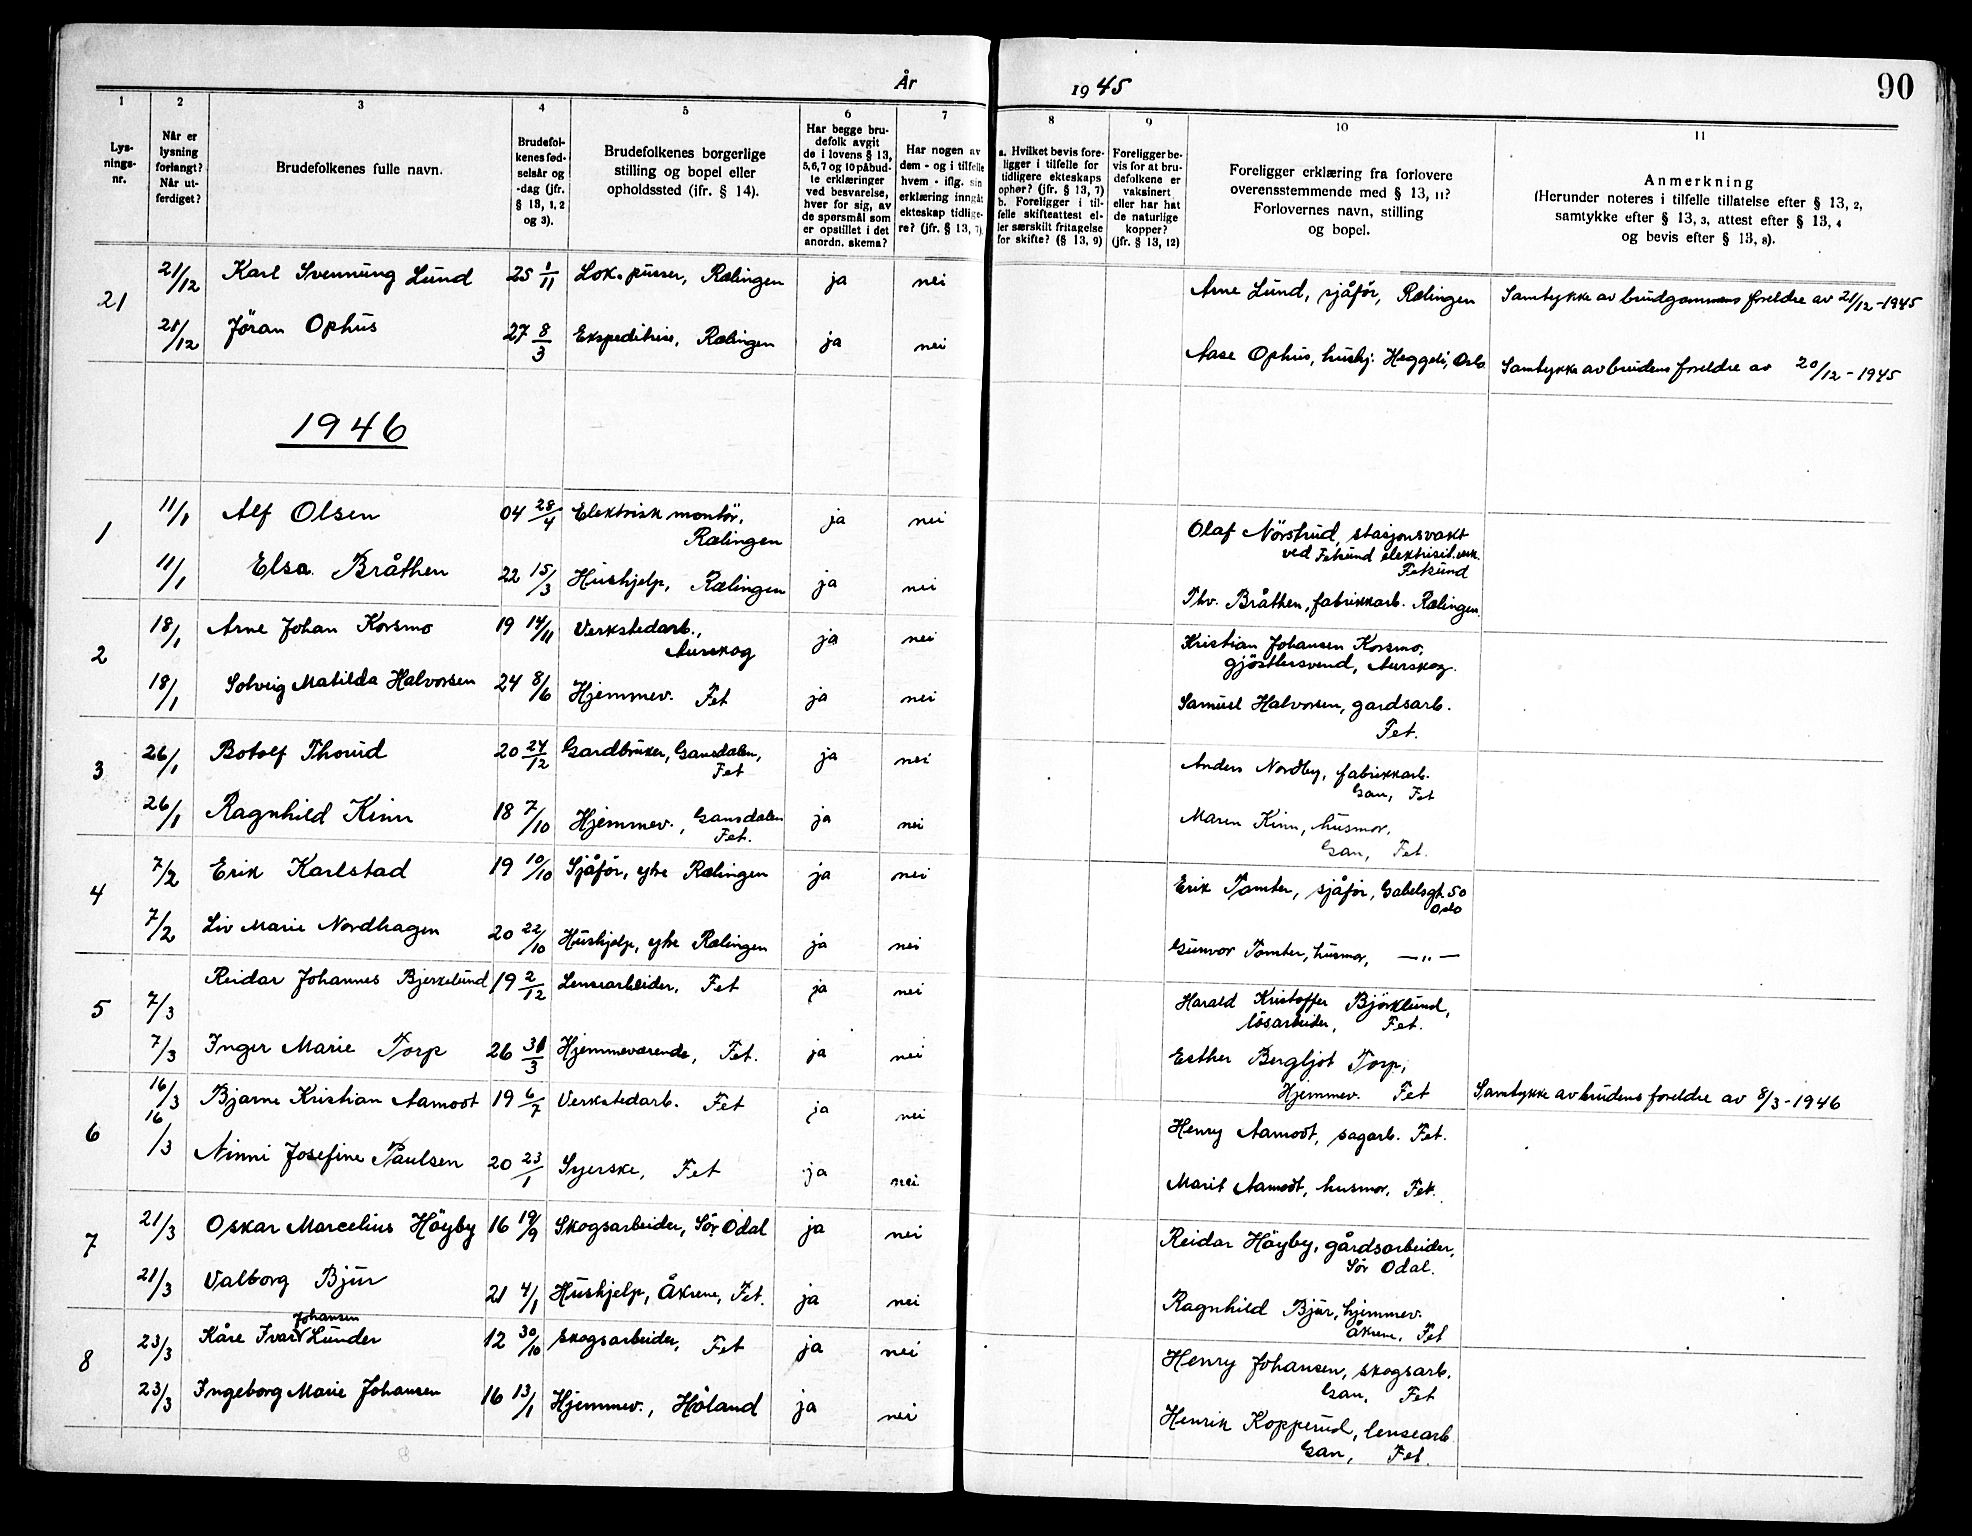 År 1945
90
1
2
3
4
5
6
7
8
9
10
11
Lys-
nings-
nr.
Når er
lysning
forlangt?
Når ut-
ferdiget?
Brudefolkenes fulle navn.
Brudefol-
kenes fød-
selsår og
-dag (jfr.
§ 13, 1, 2
og 3).
Brudefolkenes borgerlige
stilling og bopel eller
opholdssted (ifr. § 14).
Har begge bru-
defolk avgit
de i lovens § 13,
5, 6, 7 og 10 påbud-
te erklæringer
ved besvarelse,
hver for sig, av
de spørsmål som
er opstillet i det
anordn. skema?
Har nogen av
dem - og i tilfelle
hvem - iflg. sin
erklæring inngåt
ekteskap tidlige-
re? (jfr. § 13, 7).
a. Hvilket bevis fore-
ligger i tilfelle for
tidligere ekteskaps
ophør? (jfr. § 13, 7)
b. Foreligger i til-
felle skifteattest el-
ler særskilt fritagelse
for skifte? (§ 13, 9)
Foreligger be-
vis for at bru-
defolkene er
vaksinert
eller har hat
de naturlige
kopper?
(jfr. § 13, 12)
Foreligger erklæring fra forlovere
overensstemmende med § 13, 11?
Forlovernes navn, stilling
og bopel.
Anmerkning
(Herunder noteres i tilfelle tillatelse efter § 13, 2,
samtykke efter § 13, 3, attest efter § 13, 4
og bevis efter § 13, 8).
21
21/12 Karl Svennung Lund 25 1/11 Lok. pusser, Rælingen ja nei Arne Lund, sjåför, Rælingen Samtykke av brudgommens foreldre av 21/12-1945
21/12 Jöran Ophus 27 8/3 Ekspeditrise, Rælingen ja nei Aase Ophus, hushj. Heggeli, Oslo Samtykke av brudens foreldre av 20/12-1945
1946
1
11/1 Alf Olsen 04 28/4 Elektrisk montör,
Rælingen ja nei Olaf Nörstrud, stasjonsvakt
ved Fetsund elektrisit.verk.
Fetsund
11/1 Elsa Bråthen 22 15/3 Hushjelp, Rælingen ja nei Thv. Bråthen, fabrikkarb. Rælingen.
2
18/1 Arne Johan Korsmo 19 14/11 Verkstedarb.,
Aurskog ja nei Kristian Johansen Korsmo,
gjöstlersvend, Aurskog.
18/1 Solveig Matilda Halvorsen 24 8/6 Hjemmev. Fet ja nei Samuel Halvorsen, gardsarb.
Fet.
3
26/1 Botolf Thorud 20 24/12 Gardbruker, Gansdalen,
Fet ja nei Anders Nordby, fabrikkarb.
Gan, Fet
26/1 Ragnhild Kinn 18 7/10 Hjemmev., Gansdalen
Fet. ja nei Maren Kinn, husmor,
Gan, Fet.
4
7/2 Erik Karlstad 19 10/10 Sjåför, ytre Rælingen ja nei Erik Tomter, sjåför, Gabelsgt. 50
Oslo
7/2 Liv Marie Nordhagen 20 22/10 Hushjelp, ytre Rælingen ja nei Gunvor Tomter, husmor, — „ —
5
7/3 Reidar Johannes Bjerkelund 19 2/12 Lensearbeider, Fet ja nei Harald Kristoffer Björklund,
lösarbeider, Fet.
7/3 Inger Marie Torp 26 31/3 Hjemmeværende, Fet. ja nei Esther Bergljot Torp,
Hjemmev. Fet Samtykke av brudens foreldre av 8/3-1946
6
16/3 Bjarne Kristian Aamodt 19 6/7 Verkstedarb. Fet ja nei Henry Aamodt, sagarb. Fet.
16/3 Ninni Josefine Paulsen 20 23/1 Syerske, Fet ja nei Marit Aamodt, husmor, Fet.
7
21/3 Oskar Marcelius Höyby 16 19/9 Skogsarbeider, Sör Odal ja nei Reidar Höyby, gårdsarbeider,
Sör Odal.
21/3 Valborg Bjur 21 4/1 Hushjelp, Åkrene, Fet. ja nei Ragnhild Bjur, hjemmev.
Åkrene, Fet
8
Johansen
23/3 Kåre Ivar Lunder 12 30/10 skogsarbeider, Fet ja nei Henry Johansen, skogsarb.
Gan, Fet
23/3 Ingeborg Marie Johansen 16 13/1 Hjemmev., Höland ja nei Henrik Kopperud, lensearb
Gan, Fet.